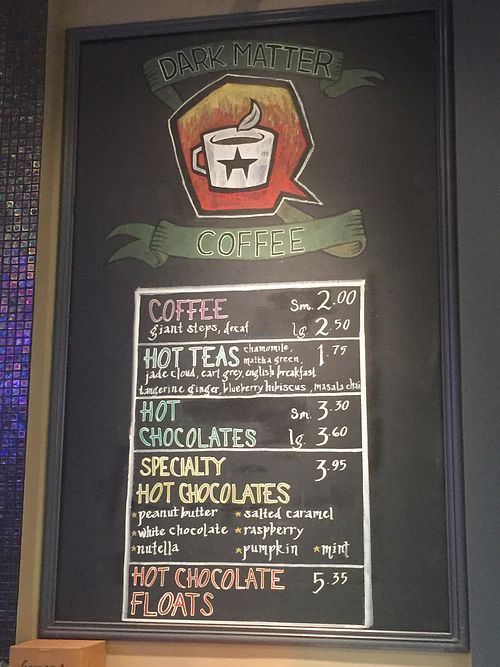 DARK MATTER
COFFEE
COFFEE Sm. 2.00
giant steps, decaf lg 2.50
HOT TEAS chamomile, 1.75
matcha green,
jade cloud, earl grey, english breakfast
tangerine ginger, blueberry hibiscus, masala chai
HOT Sm. 3.30
CHOCOLATES lg. 3.60
SPECIALTY 3.95
HOT CHOCOLATES
*peanut butter *salted caramel
*white chocolate *raspberry
*nutella *pumpkin *mint
HOT CHOCOLATE 5.35
FLOATS